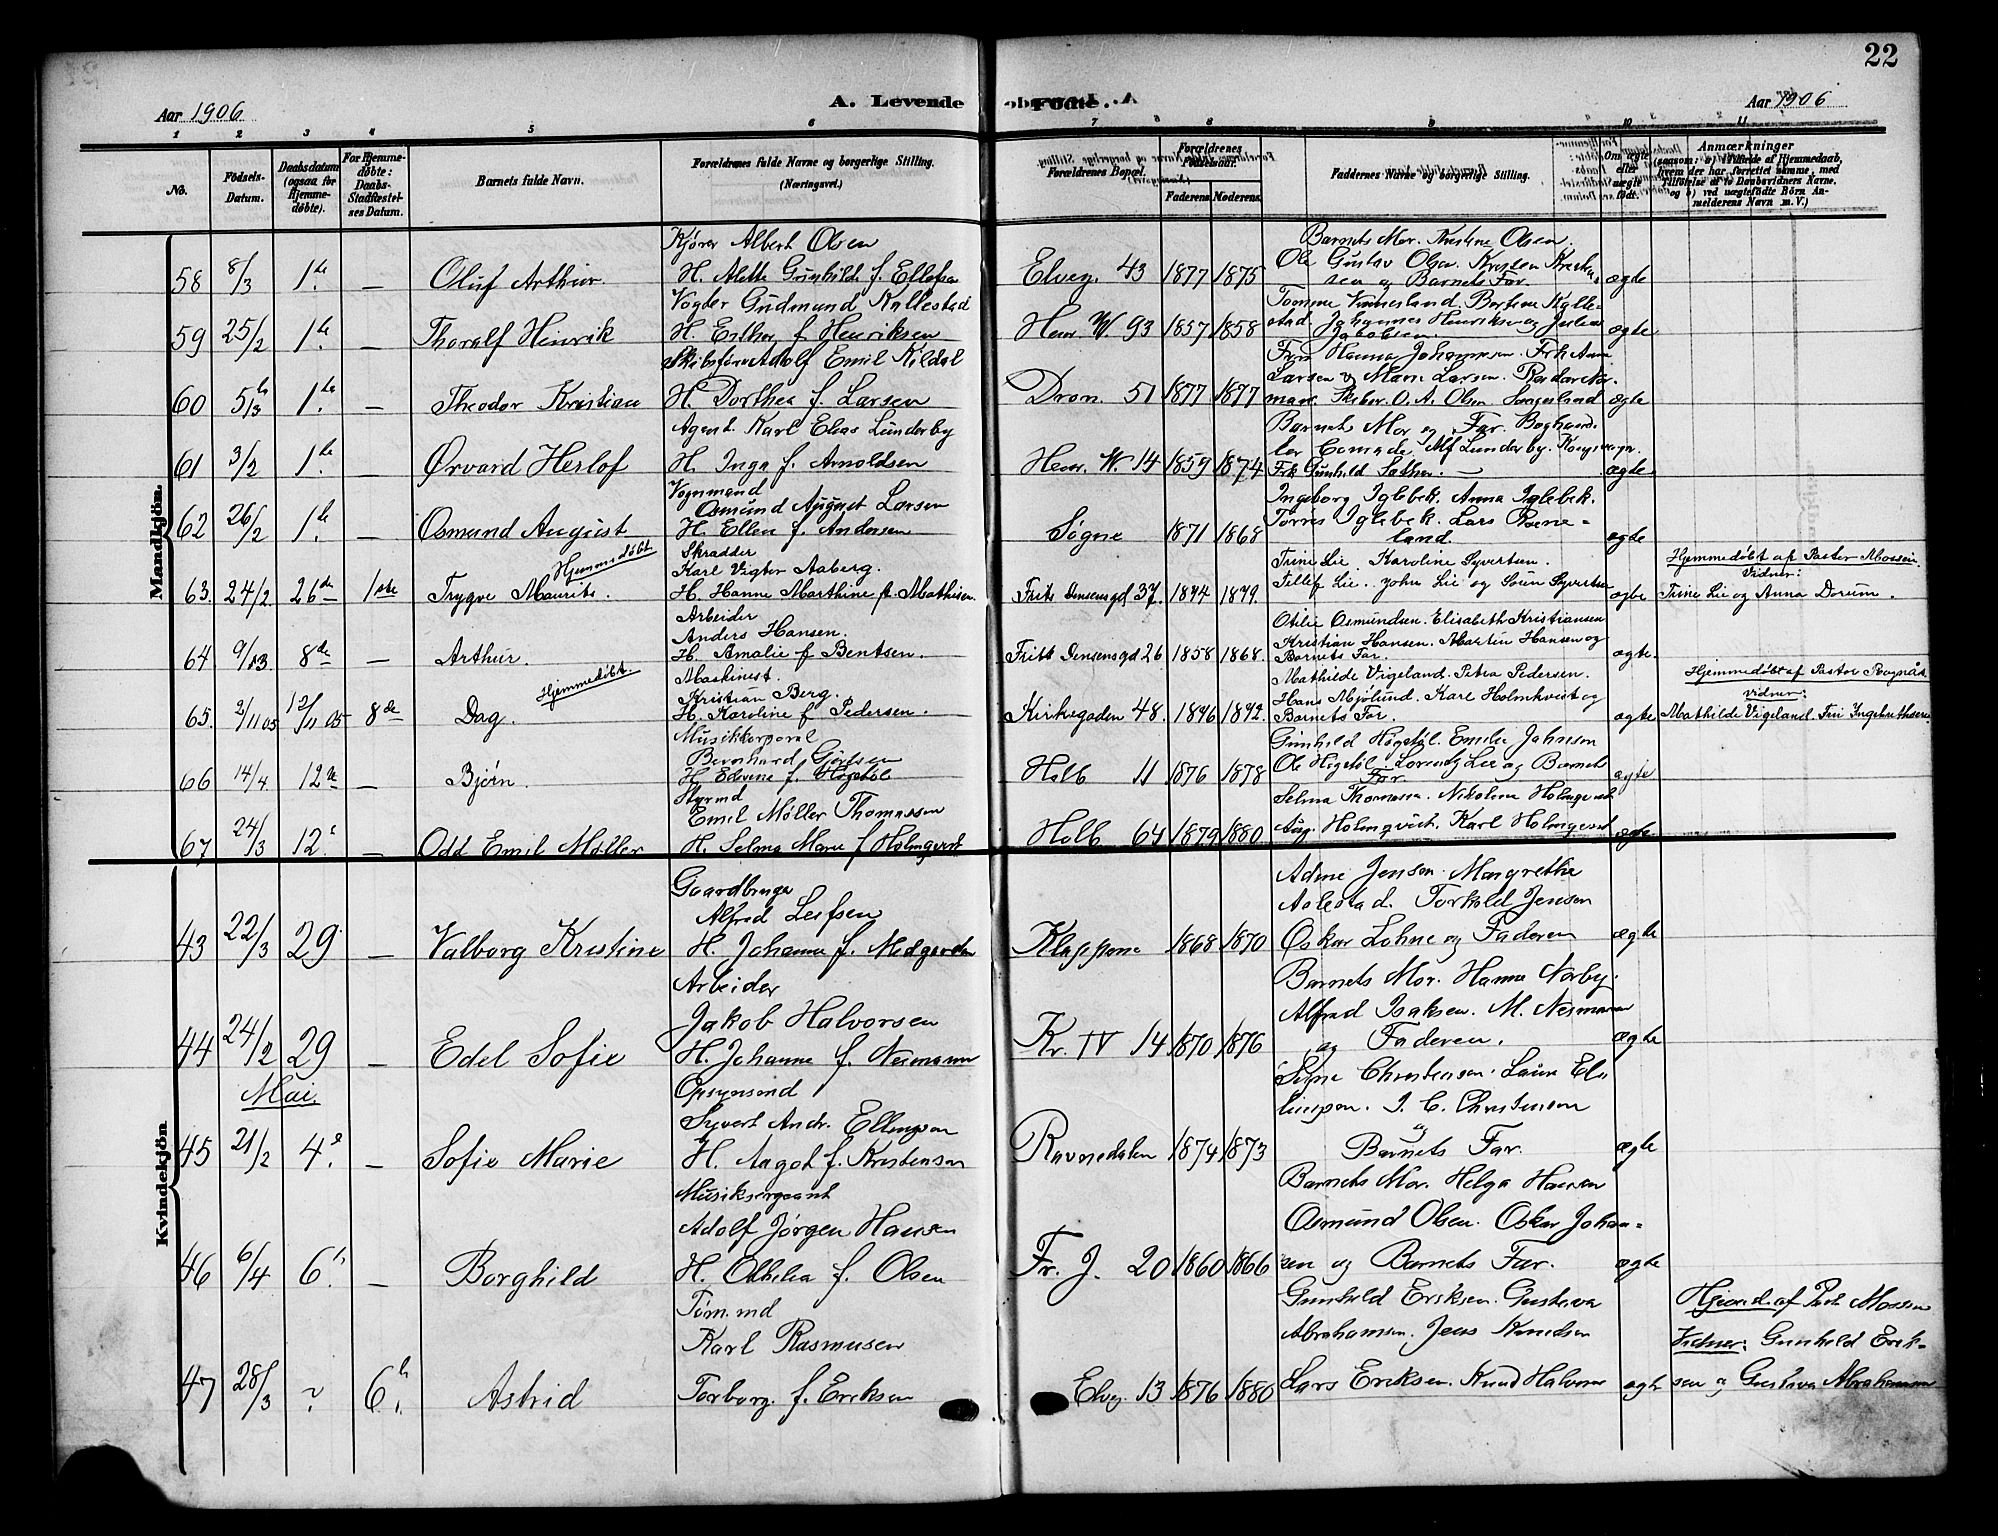 22
Aar 1906
A. Levende Fødte.
Aar 1906
1 2 3 4 5 6 7 8 9 10 11
No.
Fødsels-Datum.
Daabsdatum (ogsaa for Hjemmedøbte).
For Hjemmedøbte: Daabs-Stadfæstelses Datum.
Barnets fulde Navn.
Forældrenes fulde Navne og borgerlige Stilling. (Næringsvei.)
Forældrenes Bopæl.
Forældrenes Fødselsaar.
Faderens
Moderens
Faddernes Navne og borgerlige Stilling.
Om ægte eller uægte født.
Anmærkninger (saasom: a) i Tilfælde af Hjemmedaab, hvem der har forrettet samme, med Tilføielse af to Daabsvidners Navne, og b) ved uægtefødte Børn Anmelderens Navn m. V.)
Mandkjön.
Kjører Albert Olsen
Barnets Mor. Kristine Olsen.
58 8/3 1de — Oluf Arthur. H. Alette Gunhilde f. Ellefsen Elveg. 43 1877 1875 Ole Gustav Olsen. Kristen Kristensen og Barnets Far. ægte
Vogter Gudmund Kallestad
59 25/2 1de — Thoralf Hinrik H. Esther f. Henriksen Henr. W. 93 1857 1858 Johannes Henriksen og Julius Jakobsen. ægte
Skibsfører Adolf Emil Kildal
Fru Hanna Johannesen. Frk Anna
60 5/3 1de — Theodor Kristian H. Dorthea f. Larsen Dron. 51 1877 1877 Larsen og Marie Larsen. Skiber. O. A. Olsen ægte
Agent. Karl Elias Lunderby
Barnets Mor og Far.
61 3/2 1de — Ørvard Herlof H. Inga f. Arnoldsen Henr. W. 14 1859 1874 Alf Lunderby. Frk Gunhild Sather. — ægte
Vognmand
Osmund August Larsen
Ingeborg Iglebek. Anna Iglebek.
62 26/2 1de — Osmund August H. Ellen f. Andersen Søgne 1871 1868 Torris Iglebek. Lars land. ægte
Skrædder
Karl Vigtor Aaberg.
Trine Lie. Karoline Syvertsen.
Hjemmedøbt af Pastor Mossin.
Vidner:
Hjemmedøbt
63. 24/2. 26de 1ste Trygve Maurits. H. Hanne Marthine f. Mathisen. Frits Jensensgd 37. 1874 1879. Tellef Lie. John Lie og Søren Syvertsen ægte Trine Lie og Anna Dorum.
Arbeider
Anders Hansen.
Otilie Osmundsen. Elisabeth Kristiansen
64 9/3 8de — Arthur. H. Amalie f Bentsen. Fritz Jensensgd 26 1858 1868. Kristian Hansen. Martin Hansen og Barnets Far. ægte.
Maskinist.
Kristian Berg.
Mathilde Vigeland. Petra Pedersen.
Hjemmedøbt af Pastor
Vidner:
Hjemmedøbt
65. 2/11 05 12/11 05 8de Dag. H. Karoline f Pedersen. Kirkegaden 48. 1876 1872. Hans Mjølund. Karl Holmkvist og Barnets Far. ægte Mathilde Vigeland. Fru Ingebrethsen
Musikkorporal
Bernhard Gjertsen
Gunhild Høgstøl. Emilie Johnsen
66 14/4. 12de — Bjørn. H Edvine f. Høgstøl Holb 11 1876 1878 Ole Høgstøl. Lorentz Lie og Barnets Far ægte
Styrmd
Emil Møller Thomassen
Selma Thomassen. Nikoline Holmqvist
67 24/3 12. — Odd Emil Møller H. Selma Marie f Holmqvist Holb 64 1879 1880. Aug. Holmqvist. Karl Holmqvist ægte
Kvindekjön
Gaardbruger
Alfred Leifsen
Adine Jensen. Margrethe
Aalestad. Torkeld Jensen
43 22/3 29 — Valborg Kristine H. Johanne f. Medgarden Kleppene 1868 1870 Oskar Lohne og Faderen ægte
Arbeider
Jakob Halvorsen
Barnets Mor. Hanna Norby.
Alfred Isaksen. M. Nesmann
44 24/2 29 — Edel Sofie H. Johanne f. Nesmann Kr. IV 14 1870 1876 og Faderen. ægte
Mai.
Opsynsmd
Syvert Andr. Ellingsen
Signe Christensen. Laura Ellingsen. J. C. Christensen
45 21/2 4. — Sofie Marie H. Aagot f. Kristensen Ravnedalen 1874 1873 og Barnets Far. ægte
Musiksergeant
Adolf Jørgen Hansen
Barnets Mor. Helga Hansen
Osmund Olsen. Oskar Johan-
46 6/4 6. — Borghild H. Othelia f. Olsen Fr. J. 20 1860 1866 sen og Barnets Far. ægte
Tøm.md
Karl Rasmusen
Gunhild Eriksen. Gustava
Abrahamsen. Jens Knudsen
Hjemd. af Past. Mossin
Vidner: Gunhild Erik-
47 28/3 6. Astrid Torborg. f. Eriksen Elveg. 13 1876 1880 Lars Eriksen. Knud Halvorsen ægte sen og Gustava Abrahamsen